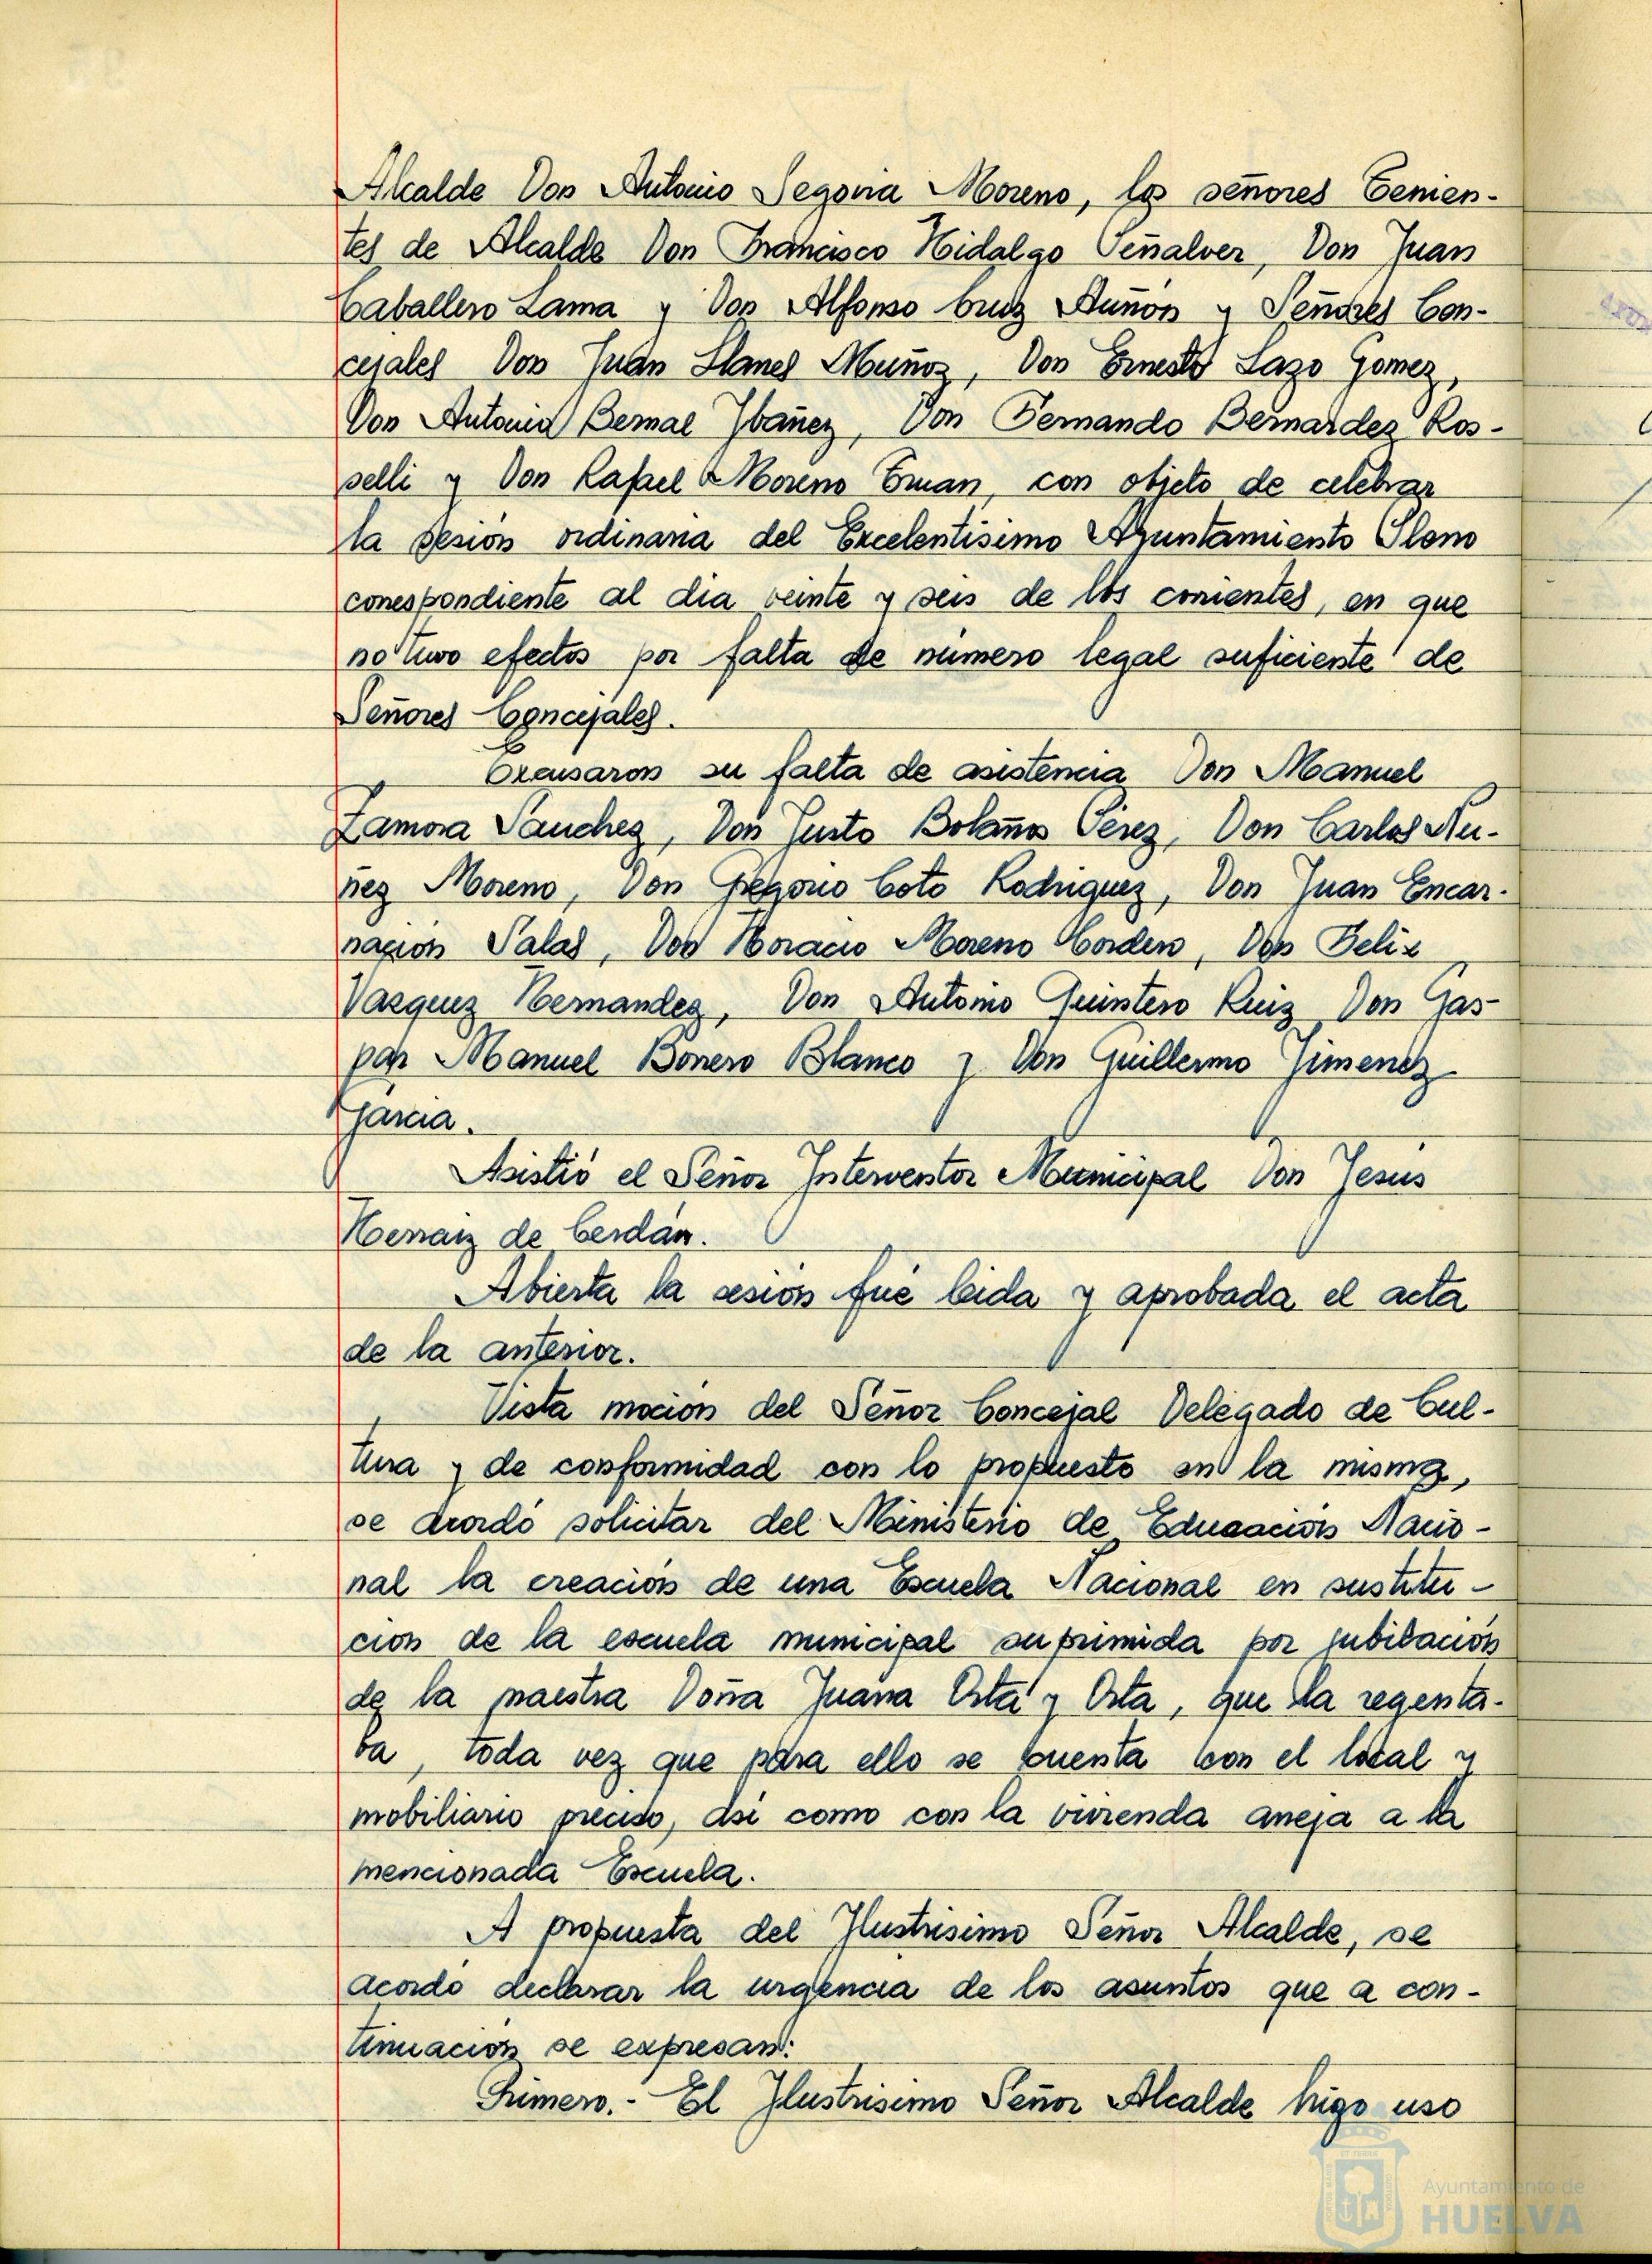 Alcalde Don Antonio Segovia Moreno, los señores Tenien-
tes de Alcalde Don Francisco Hidalgo Peñalver, Don Juan
Caballero Lama y Don Alfonso Cruz Auñón y Señores Con-
cejales Don Juan Llanes Muñoz, Don Ernesto Lazo Gomez,
Don Antonio Bernal Ybañez, Don Fernando Bernardez Ros-
selli y Don Rafael Moreno, con objeto de celebrar
la sesión ordinaria del Excelentísimo Ayuntamiento Pleno
correspondiente al dia veinte y seis de los corrientes, en que
no tuvo efectos por falta de número legal suficiente de
Señores Concejales.
Excusaron su falta de asistencia Don Manuel
Zamora Sanchez, Don Justo Bolaños Pérez, Don Carlos Nu-
ñez Moreno, Don Gregorio Coto Rodriguez, Don Juan Encar-
nación Salas, Don Horacio Moreno Cordero, Don Felix
Vazquez Hernandez, Don Antonio Quintero Ruiz Don Gas-
par Manuel Borrero Blanco y Don Guillermo Jimenez
Garcia.
Asistió el Señor Interventor Municipal Don Jesús
Herraiz de Cerdán.
Abierta la sesión fué leida y aprobada el acta
de la anterior.
Vista moción del Señor Concejal Delegado de Cul-
tura y de conformidad con lo propuesto en la misma,
se acordó solicitar del Ministerio de Educación Nacio-
nal la creación de una Escuela Nacional en sustitu-
ción de la escuela municipal suprimida por jubilación
de la maestra Doña Juana Orta y Orta, que la regenta-
ba, toda vez que para ello se cuenta con el local y
mobiliario preciso, asi como con la vivienda aneja a la
mencionada Escuela.
A propuesta del Ilustrisimo Señor Alcalde, se
acordó declarar la urgencia de los asuntos que a con-
tinuación se expresan:
Primero.- El Ilustrisimo Señor Alcalde hizo uso
Ayuntamiento de
HUELVA